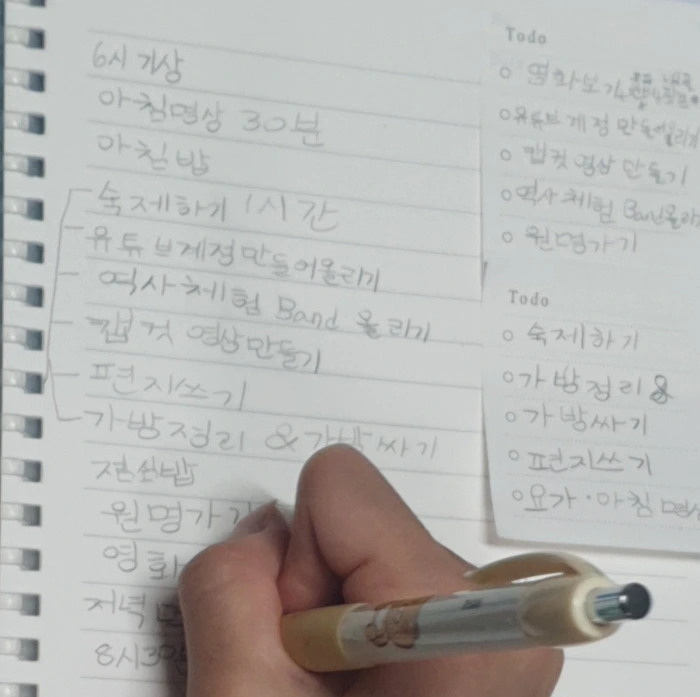 6시 기상
아침명상 30분
아침밥
숙제하기 1시간
유튜브계정만들어올리기
역사체험 Band 올리기
캡컷 영상만들기
편지쓰기
가방정리 & 가방싸기
점심밥
원명가기
영화
저녁
8시30분
Todo
영화보기
유튜브계정만들어올리기
캡컷 영상 만들기
역사체험 Band올리
원명가기
Todo
숙제하기
가방정리 &
가방싸기
편지쓰기
요가·아침 명상